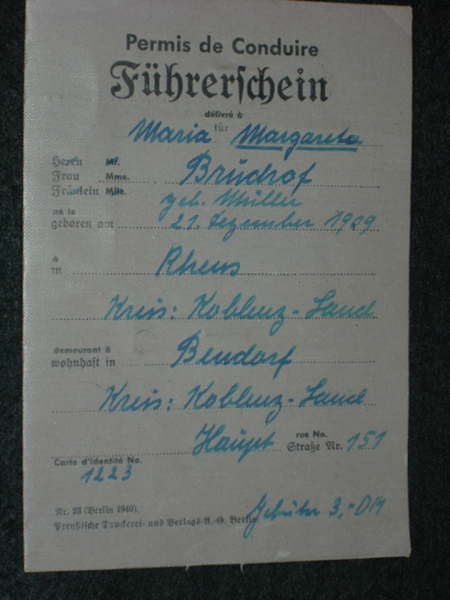 Permis de Conduire
Führerschein
délivré à
für
Maria Margareta
Herrn Mr.
Frau Mme.
Fräulein Mlle.
Brüdrof
geb. Müller
né le
geboren am 21. Dezember 1909
à
in Rhens
Kreis: Koblenz-Land
demeurant à
wohnhaft in Bendorf
Kreis: Koblenz-Land
Haupt rue No.
Straße Nr. 151
Carte d'identité No.
1223
Nr. 23 (Berlin 1940).
Preußische Druckerei- und Verlags-A.-G. Berlin.
Gebühr 3,- DM